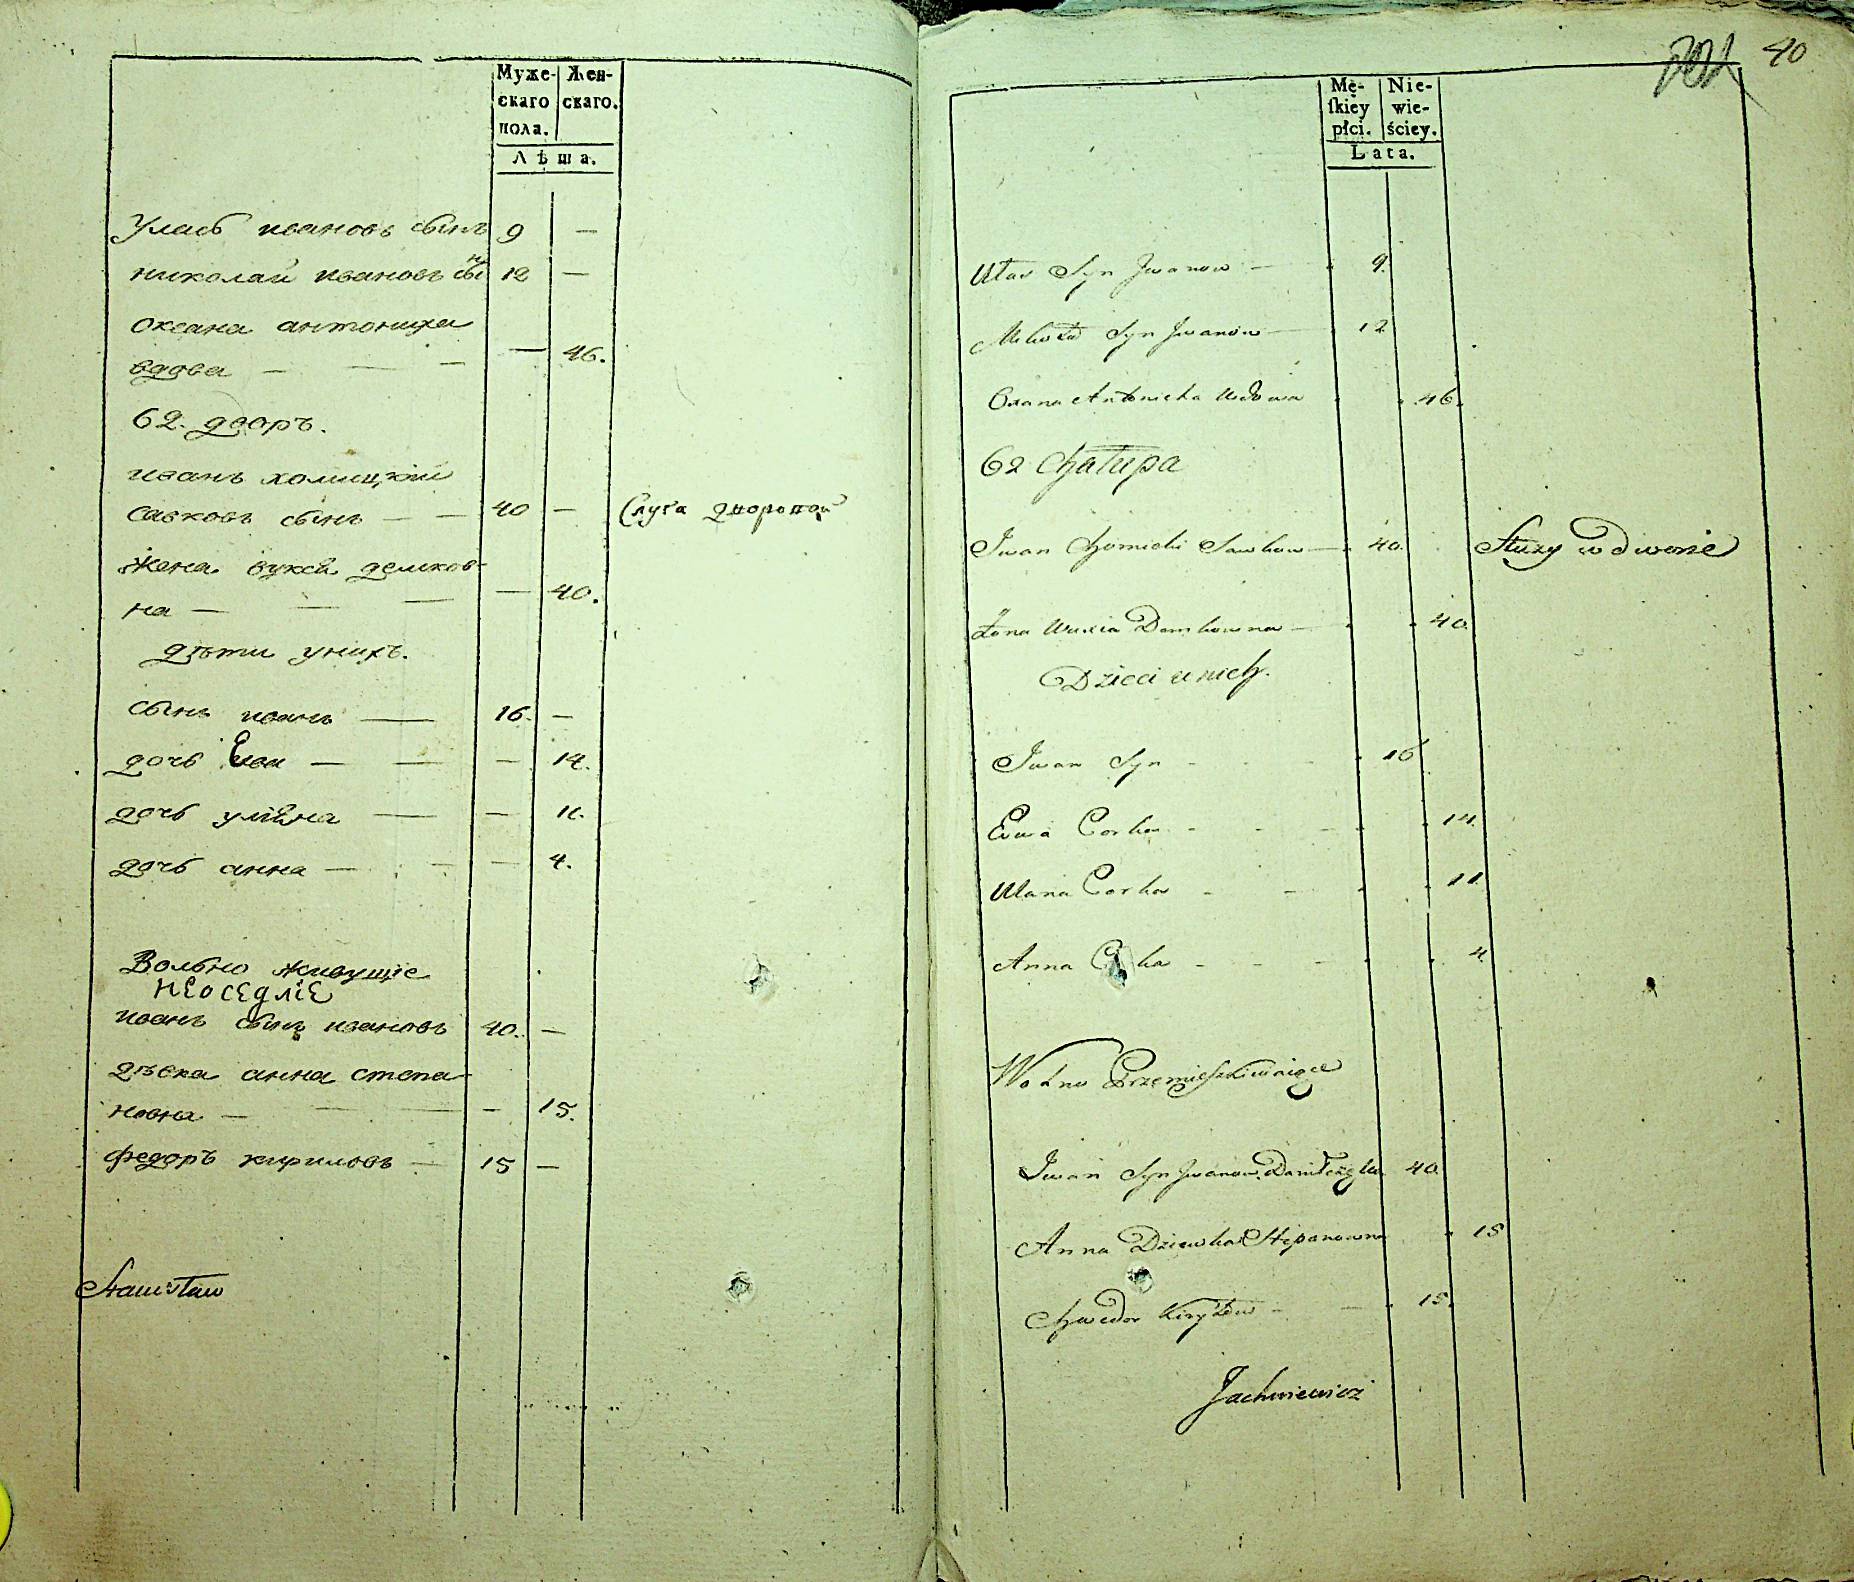 Муже- Жен-
скаго скаго.
пола.
Лѣта.
Уласъ ивановъ сынъ 9 —
николай ивановъ сынъ 12 —
оксана антониха
вдова — — — — 46.
62. дворъ.
иванъ хомицкій
савковъ сынъ — — 40 — Слуга дворовой
жена вукся демков-
на — — — — 40.
дѣти унихъ.
сынъ иванъ — 16. —
дочь Ева — — — 14.
дочь уліана — — 11.
дочь анна — — — 4.
Вольно живущіе
НЕОСЕДЛІЕ
иванъ сынъ ивановъ 40. —
дѣвка анна степа-
новна — — — — 15.
федоръ кириловъ — 15 —
Stanisław
40
Mę- Nie-
skiéy wie-
płci. ściey.
Lata.
Ułas Syn Iwanow — 9.
Mikołai Syn Iwanow — 12
Oxana Antonicha Wdowa 46.
62 Chałupa
Iwan Chomicki Sawkow — 40. Służy w dworze
Żona Wuxia Demkowna — 40.
Dzieci u nich.
Iwan Syn - - - 16
Ewa Corka - - - 14.
Ulana Corka - - 11.
Anna Corka - - - 4.
Wolno Przemieszkiwaiące
Iwan Syn Iwanow 40.
Anna Dziewka Stepanowna 15
Chwedor Kiryłow - — 15.
Jachniewicz